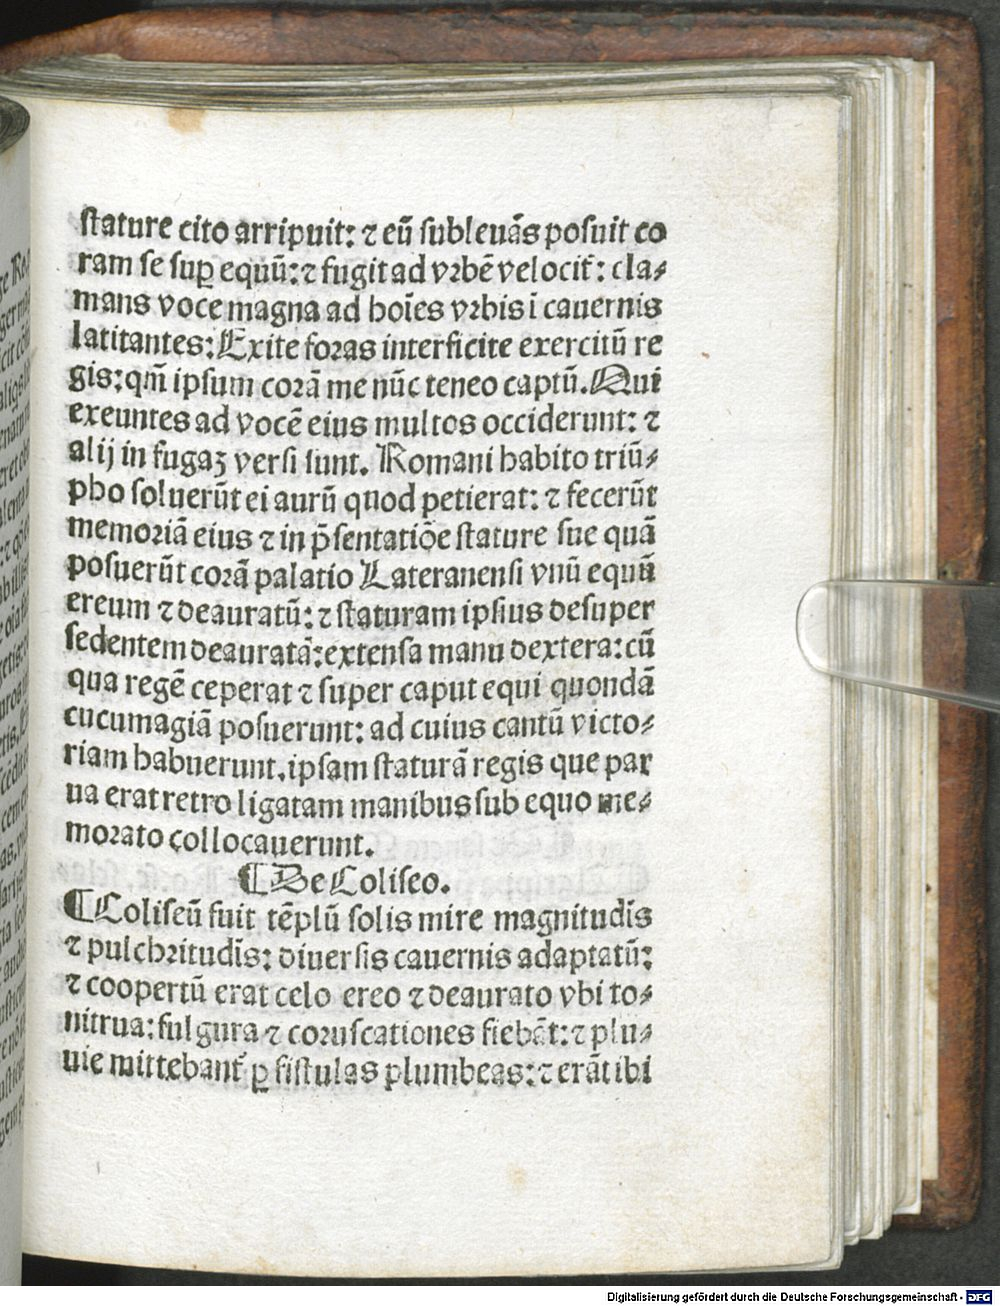 stature cito arripuit: ⁊ eū subleuās posuit co
ram se suꝑ equū: ⁊ fugit ad vrbē velocit̄: cla⸗
mans voce magna ad hoīes vrbis i cauernis
latitantes: Exite foras interficite exercitū re
gis: qm̄ ipsum corā me nūc teneo captū. Qui
exeuntes ad vocē eius multos occiderunt: ⁊
alij in fugaꝫ versi sunt. Romani habito triū⸗
pho soluerūt ei aurū quod petierat: ⁊ fecerūt
memoriā eius ⁊ in p̄sentatiōe stature sue quā
posuerūt corā palatio Lateranensi vnū equū
ereum ⁊ deauratū: ⁊ staturam ipsius desuper
sedentem deauratā: extensa manu dextera: cū
qua regē ceperat ⁊ super caput equi quondā
cucumagiā posuerunt: ad cuius cantū victo⸗
riam habuerunt. ipsam staturā regis que par
ua erat retro ligatam manibus sub equo me⸗
morato collocauerunt.
¶ De Coliseo.
¶ Coliseū fuit tēplū solis mire magnitudīs
⁊ pulchritudīs: diuersis cauernis adaptatū:
⁊ coopertū erat celo ereo ⁊ deaurato vbi to⸗
nitrua: fulgura ⁊ coruscationes fiebāt: ⁊ plu⸗
uie mittebant̄ ꝑ fistulas plumbeas: ⁊ erāt ibi
Digitalisierung gefördert durch die Deutsche Forschungsgemeinschaft - DFG